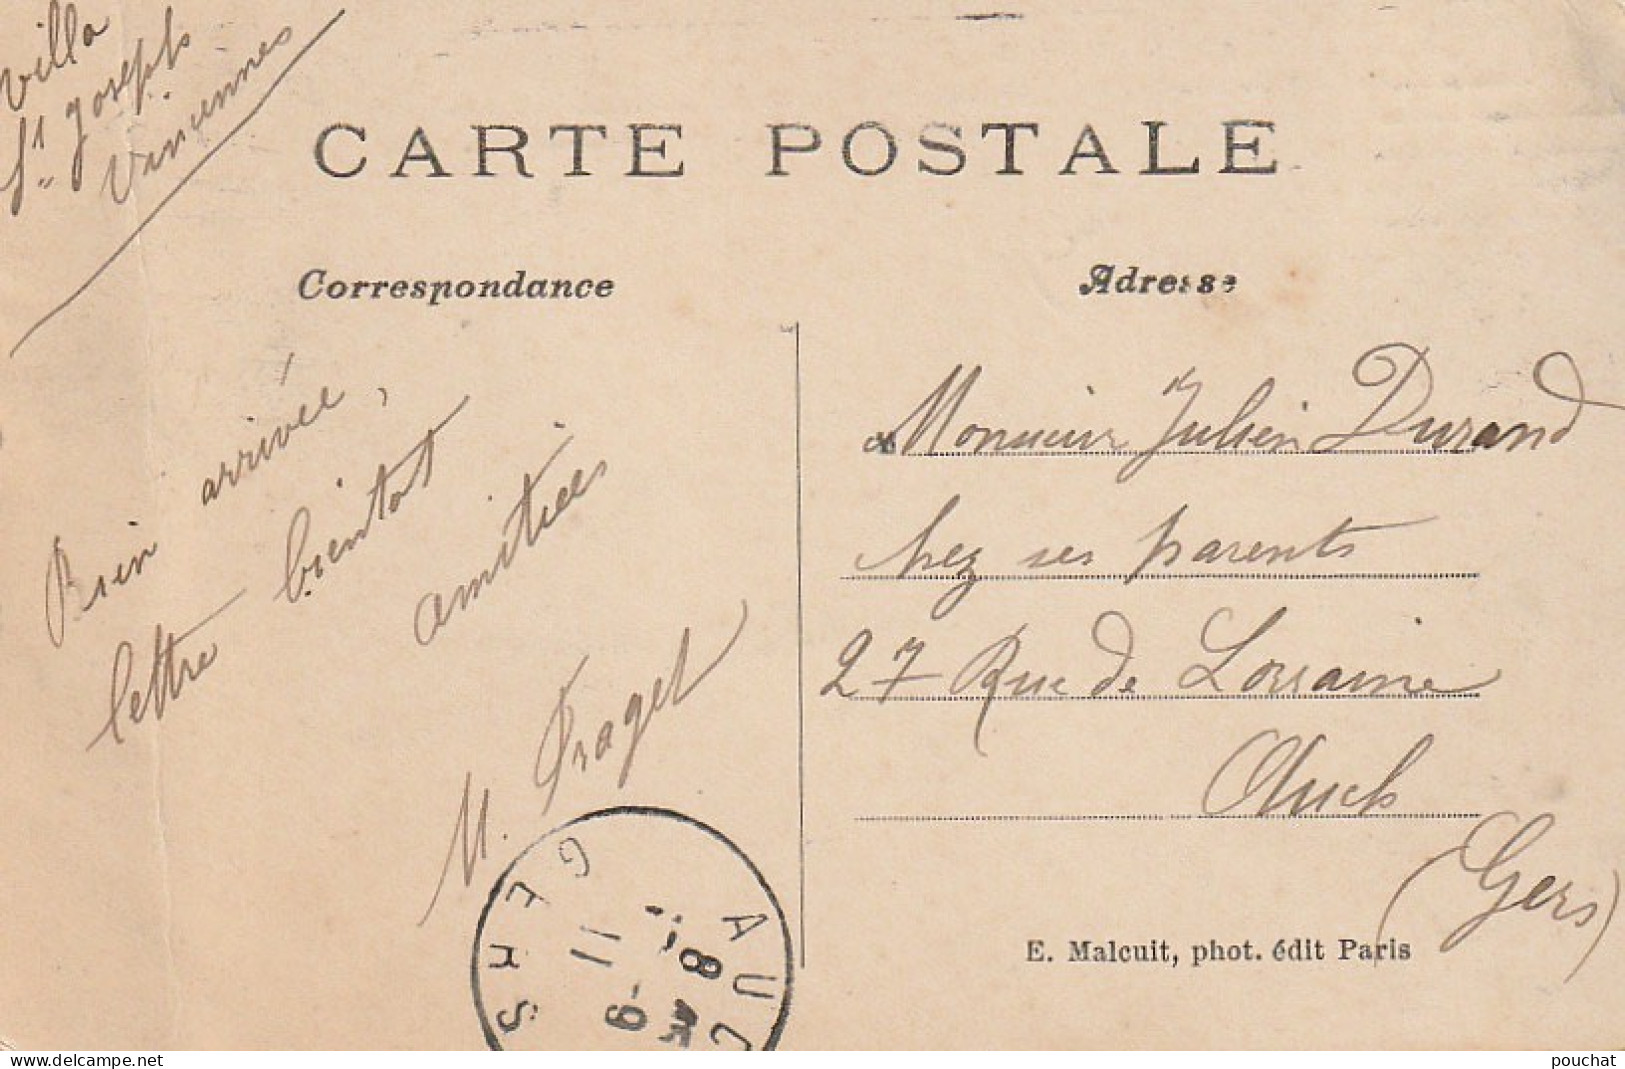 Villa
St Joseph
Vincennes
CARTE POSTALE
Correspondance
Adresse
Bien arrivée,
lettre bientot
amitiées
M. Fraget
Monsieur Julien Durand
chez ses parents
27 Rue de Lorraine
Auch
(Gers)
E. Malcuit, phot. édit Paris
AUC
GERS
8
9
11
www.delcampe.net
pouchat